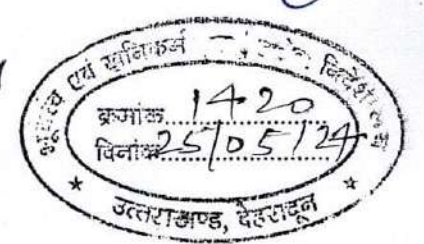 भूतत्व एवं खनिकर्म निदेशालय
क्रमांक 1420
दिनांक 25/05/24
उत्तराखण्ड, देहरादून